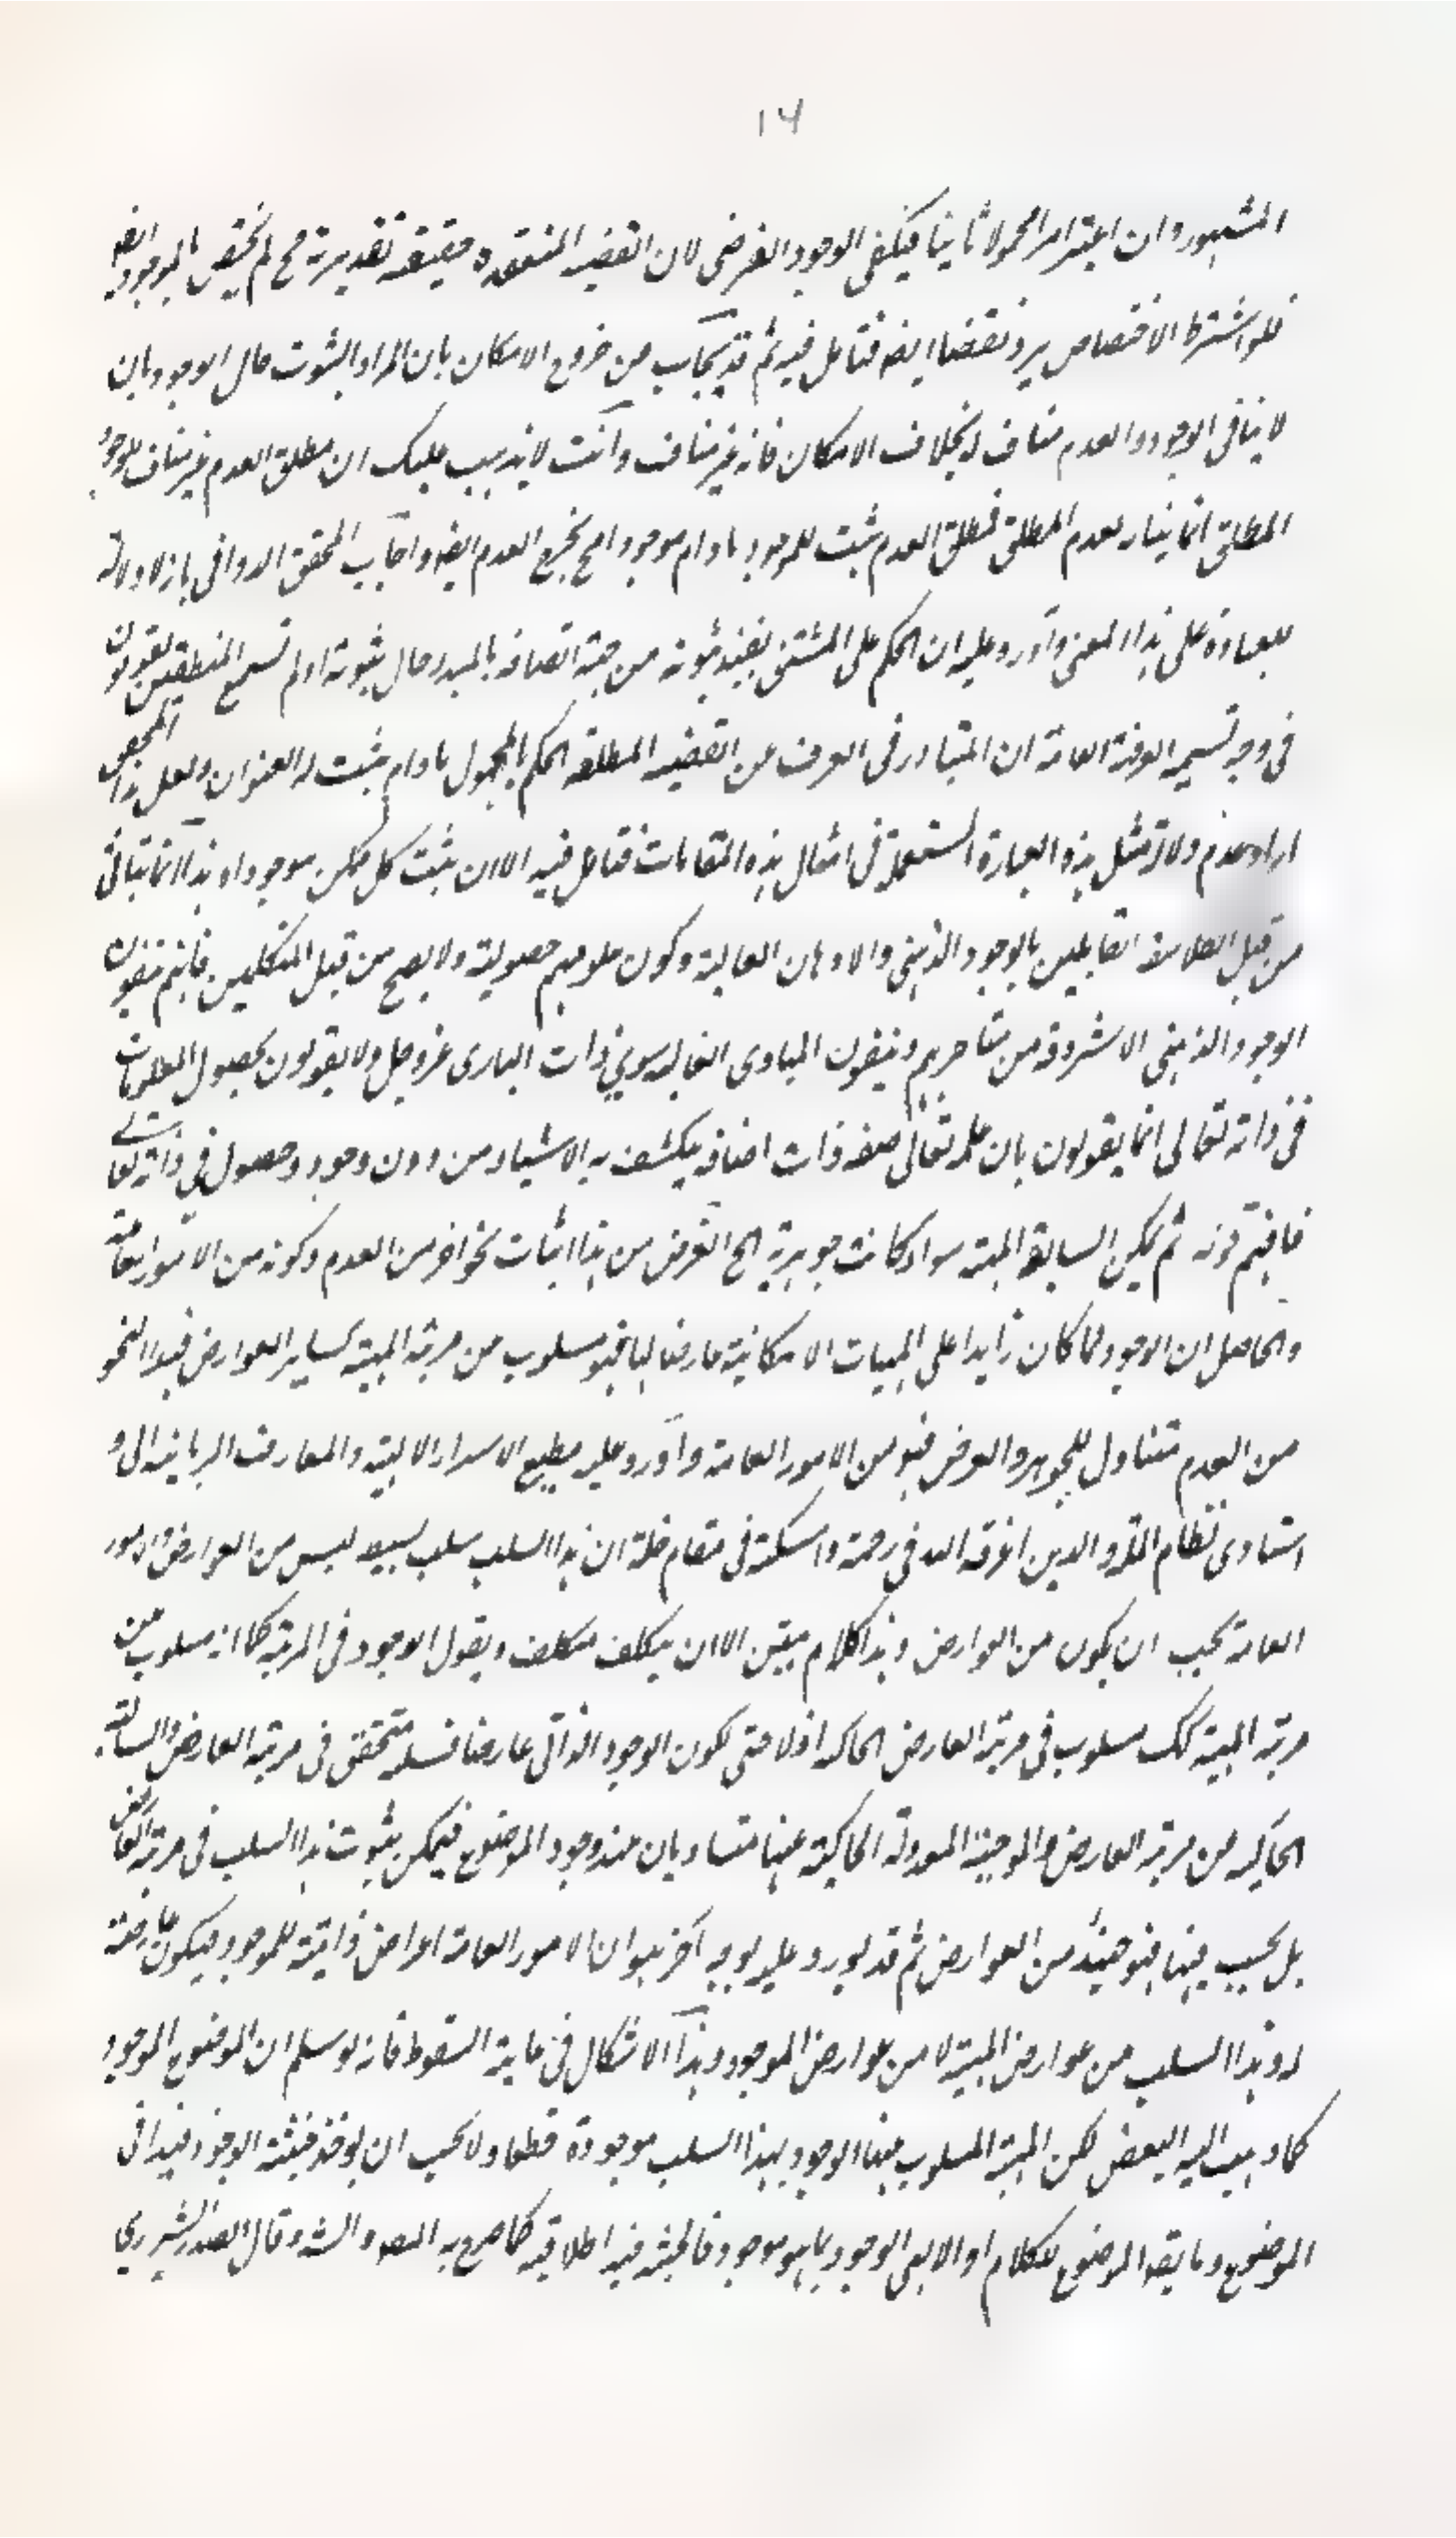 ١٦
المشهور وان اعتبر امرا محمولا ثانيا فيكفى الوجود الفرضى لان القضيه المنعقده حقيقته تقديرية مح لم يختص بالموجود ايضه
فلو اشترط الاختصاص يرد نقضا ايضه فتامل فيه ثم قد يجاب من خروج الامكان بان المراد بالثبوت حال الوجود بان
لا ينافى الوجود والعدم مناف له بخلاف الامكان فانه غير مناف وانت لا يذهب عليك ان مطلق العدم غير مناف للوجود
المطلق انما ينافيه العدم المطلق فمطلق العدم يثبت للموجود مادام موجودا مح يخرج العدم ايضه واجاب المحقق الدوانى بانه لا دلالة
للعبارة على هذا المعنى واورد عليه ان الحكم على المشتق يفيد ثبوته من جهة اتصافه بالمبدء حال ثبوته اولم تسمع المنطقيين يقولون
فى وجه تسميه العرفية العامة ان المتبادر فى العرف من القضيه المطلقه الحكم بالمحمول مادام يثبت له العنوان ولعل ذا المحقق
اراد عدم دلالة مثل هذه العبارة المستعملة فى امثال هذه المقامات فتامل فيه الا ان يثبت كل ممكن موجودا وهذا انما يتأتى
من قبل الفلاسفة القايلين بالوجود الذهنى والاذهان العالية وكون علومهم حصولية ولا يصح من قبل المتكلمين فانهم ينفون
الوجود الذهنى الا شرذمة من متاخريهم وينفون المبادى العاليه سوى ذات البارى عز وجل ولا يقولون بحصول المعلومات
فى ذاته تعالى انما يقولون بان علمه تعالى صفه ذات اضافه ينكشف به الاشياء من دون وجود وحصول فى ذاته تعالى
فافهم قوله ثم ليكن السابقه المهية سواء كانت جوهرية الخ الغرض من هذا اثبات نحو اخر من العدم وكونه من الامور العامة
والحاصل ان الوجود لما كان زايدا على المهيات الامكانية عارضا لها فهو مسلوب من مرتبة المهية كساير العوارض فهذا النحو
من العدم متناول للجوهر والعرض فهو من الامور العامة واورد عليه مطلع الاسرار الالهية والمعارف الربانيه الى و
استاذى نظام الملة والدين اغرقه الله فى رحمة واسكنه فى مقام خلة ان هذا السلب سلب بسيط ليس من العوارض والامور
العامة يجب ان يكون من العوارض وهذا كلام متين الا ان يتكلف متكلف ويقول الوجود فى المرتبة كما انه مسلوب من
مرتبة المهية كك مسلوب فى مرتبة العارض الحاكه اذ لا حتى يكون الوجود الذاتى عارضا فسلبه متحقق فى مرتبة العارض والسالبة
الحاكية من مرتبة العارض والموجبة المعدولة الحاكية عنها متساويان عند وجود الموضوع فيمكن ثبوت هذا السلب فى مرتبة العارض
بل يجب فيها فهو حينئذ من العوارض ثم قد يورد عليه بوجه اخر هو ان الامور العامة اعراض ذاتية للموجود فيكون عارضة
له وهذا السلب من عوارض المهية لا من عوارض الموجود وهذا الاشكال فى غاية السقوط فانه لو سلم ان الموضوع الموجود
كما ذهب اليه البعض لكن المهية المسلوب عنها الوجود بهذا السلب موجودة قطعا ولا يجب ان يوخذ حيثية الوجود قيدا فى
الموضوع وما يقه الموضوع للكلام او الالهى الوجود بما هو موجود فالحيثيه فيه اطلاقية كما صرح به المصه والشه وقال الصدر الشيرازى